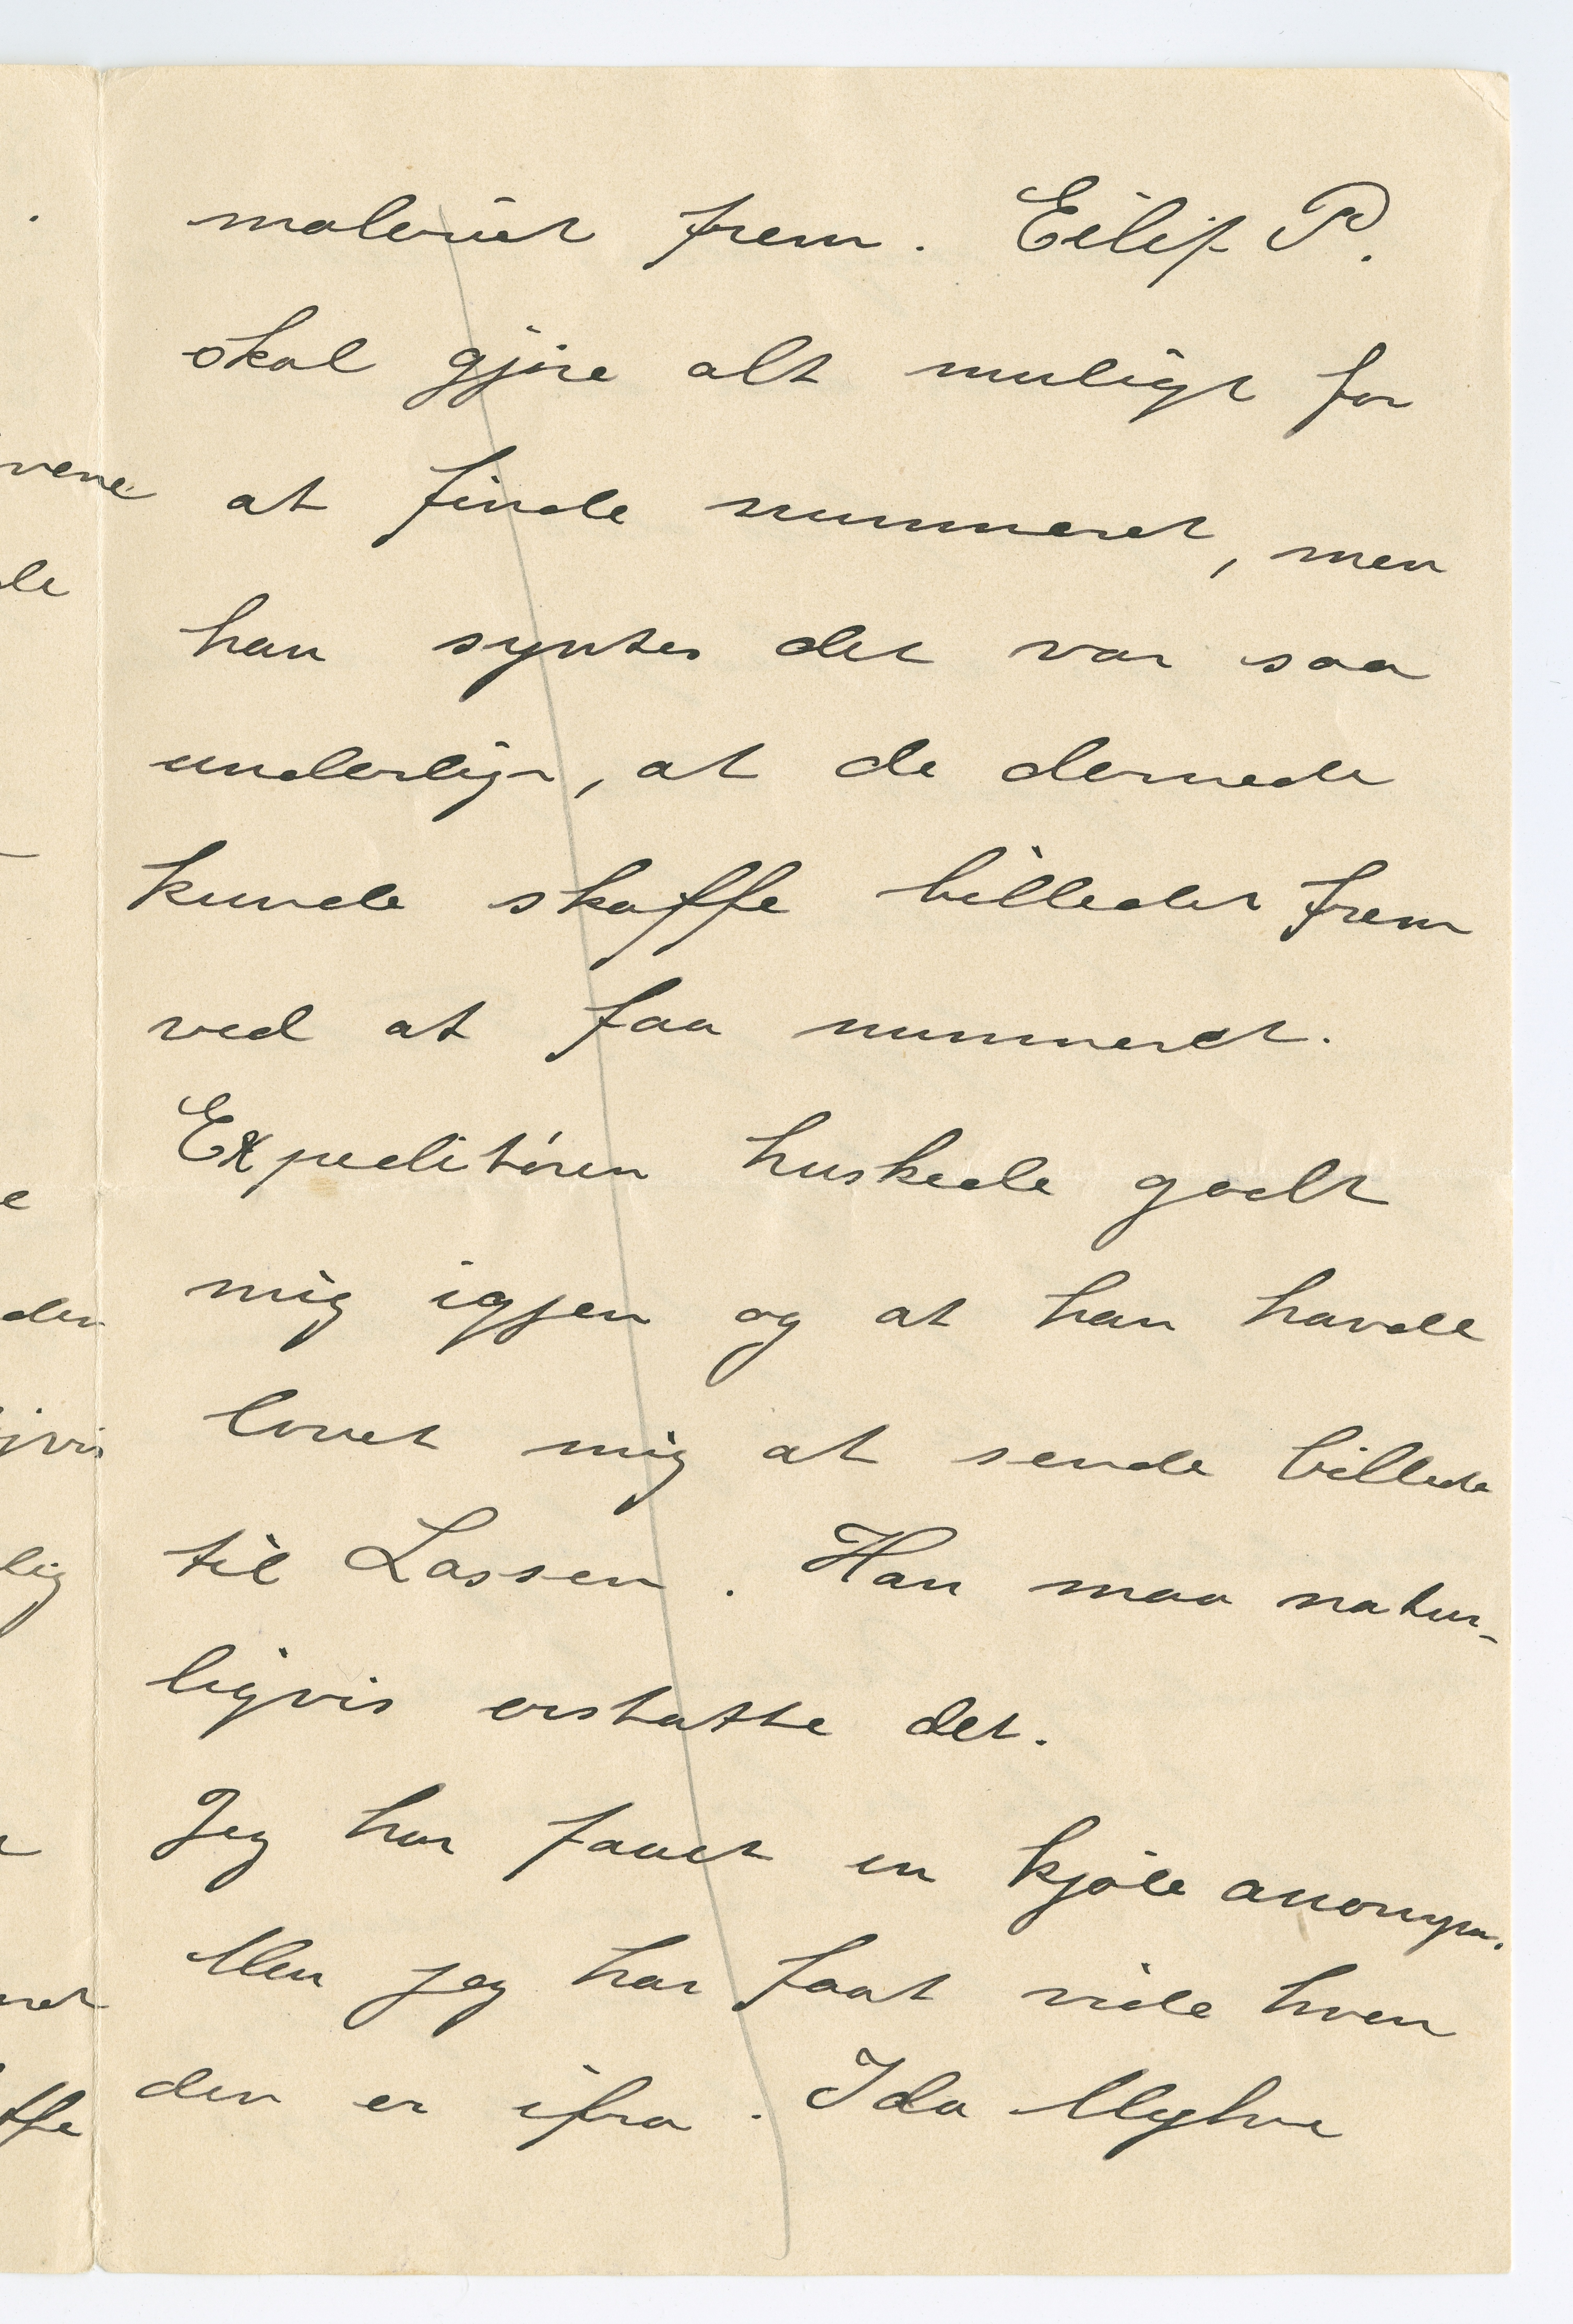 maleriet frem. Eilif P.
skal gjøre alt muligt for
at finde nummeret, men
han syntes det var saa
underligt, at de dernede
kunde skaffe billedet frem
ved at faa nummeret.
Expeditøren huskede godt
mig igjen og at han havde
lovet mig at sende billede
til Lassen. Han maa natur-
ligvis erstatte det.
Jeg har faaet en kjole anonym.
Men jeg har faat vide hvem
den er ifra. Ida